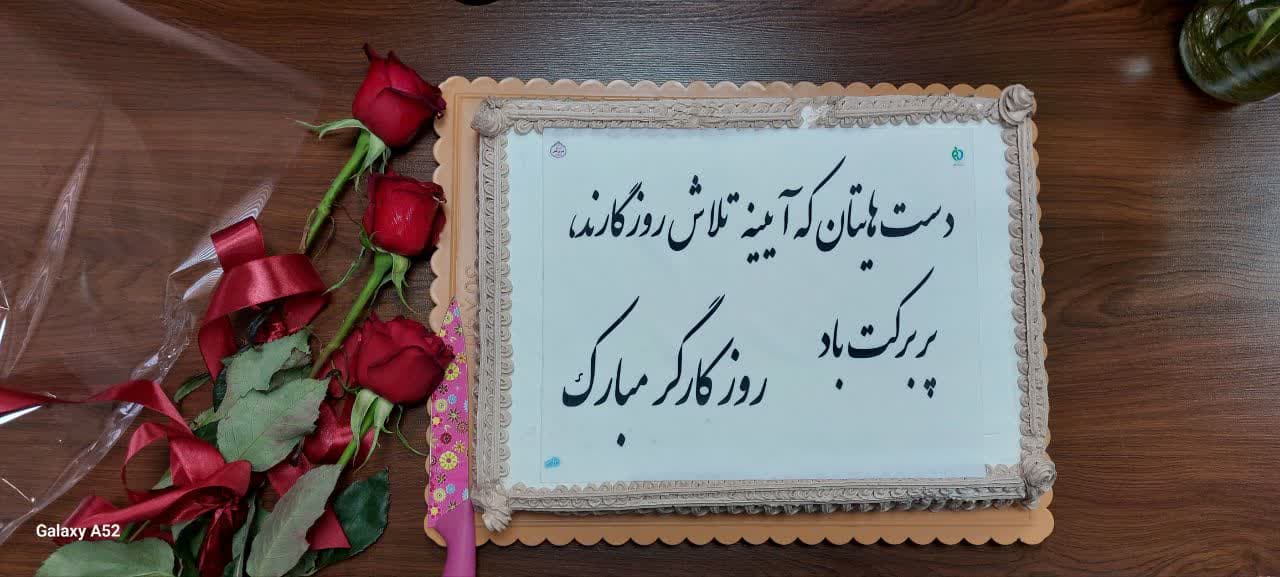 دست هایتان که آیینه تلاش روزگارند،
پر برکت باد
روز کارگر مبارک
Galaxy A52